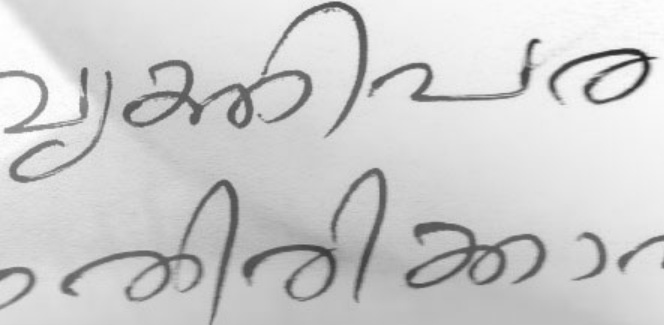 വ്യക്തിപര
തിരിക്കാ